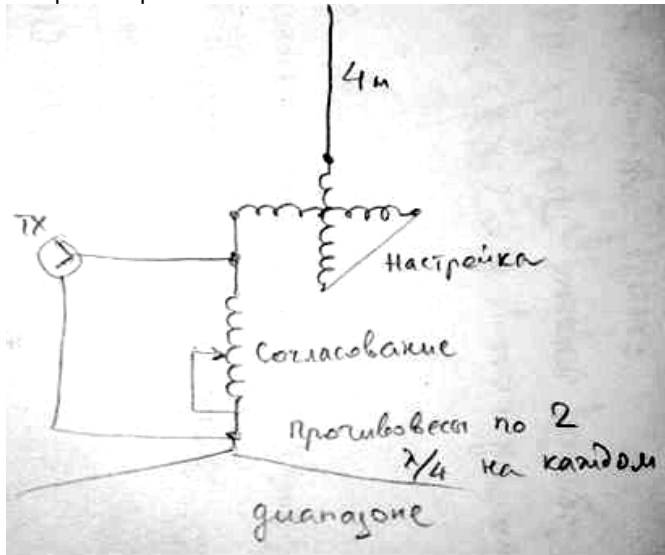 4м
TX
Настройка
Согласование
Противовесы по 2
λ/4 на каждом
диапазоне